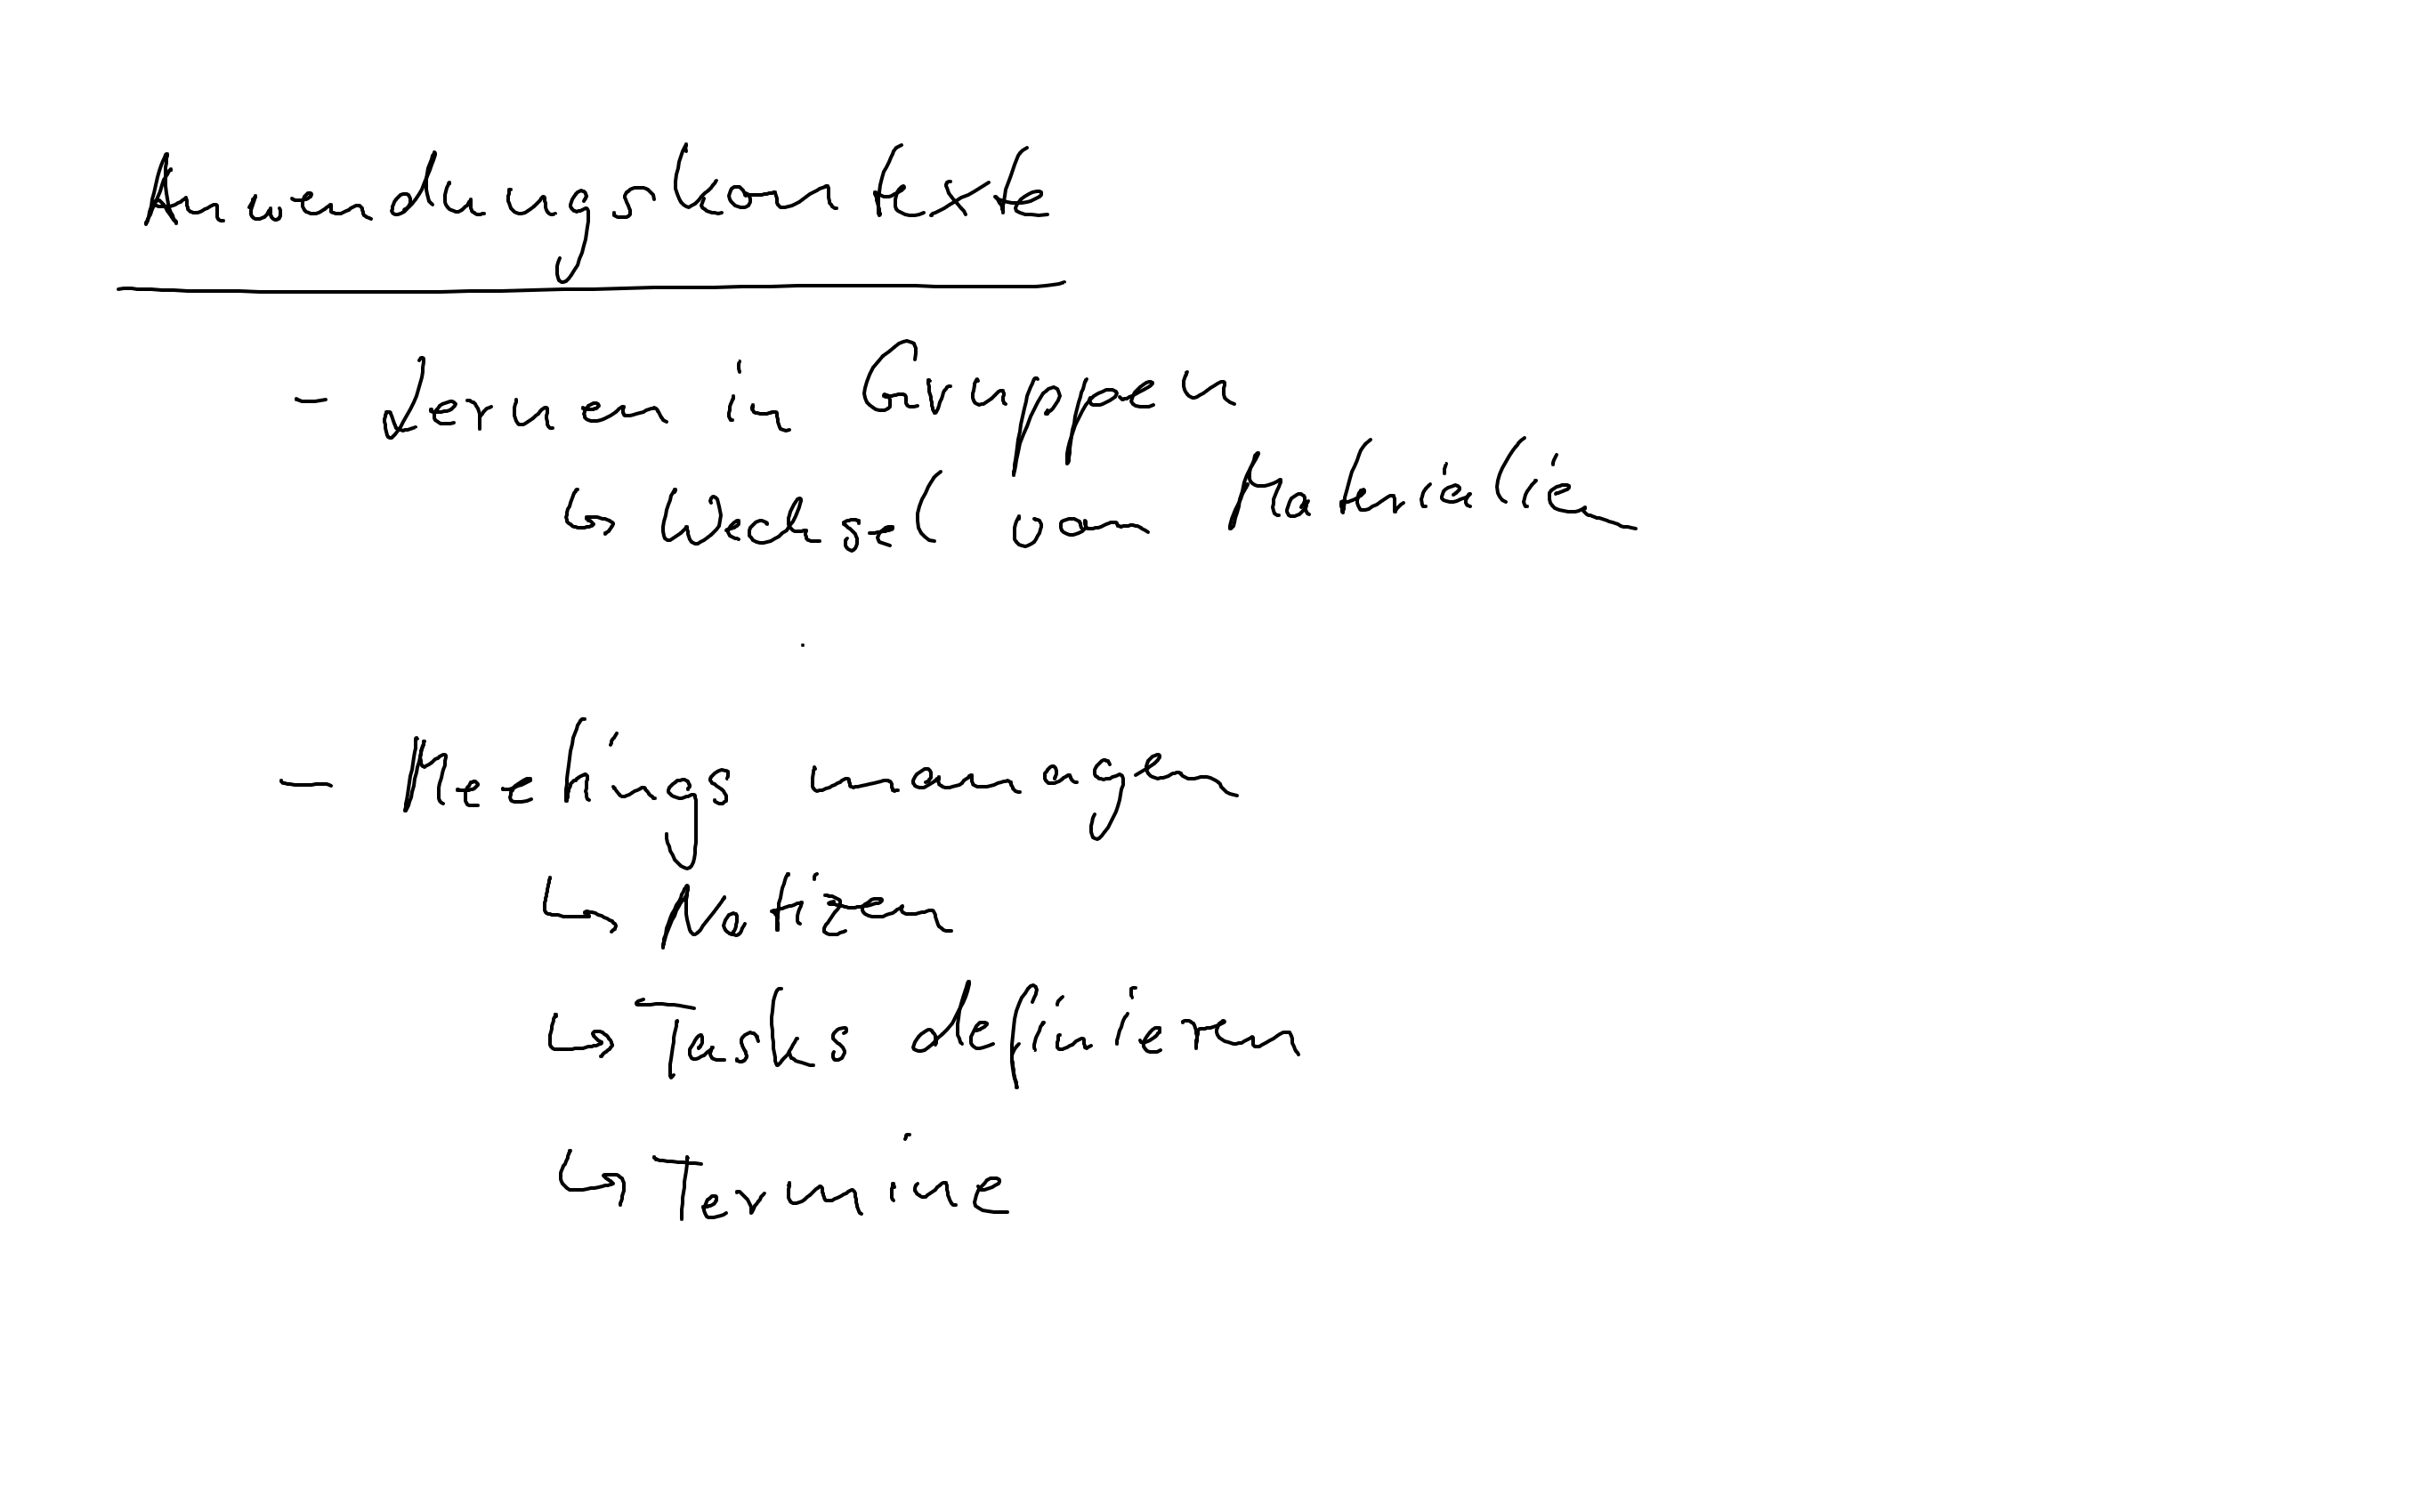 Anwendungskontexte
- Lernen in Gruppen
↳ Wechsel von Materialien
- Meetings managen
↳ Notizen
↳ Tasks definieren
↳ Termine